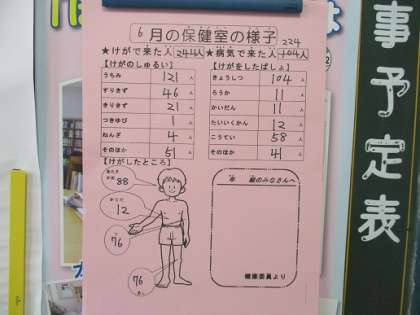 6月の保健室の様子
224
★けがで来た人244人★病気で来た人104人
【けがのしゅるい】
うちみ 121人
すりきず 46人
きりきず 21人
つきゆび 1人
ねんざ 4人
そのほか 51人
【けがをしたばしょ】
きょうしつ 104人
ろうか 11人
かいだん 11人
たいいくかん 12人
こうてい 58人
そのほか 41人
【けがしたところ】
88
12
76
76
年 組のみなさんへ
健康委員より
事予定表